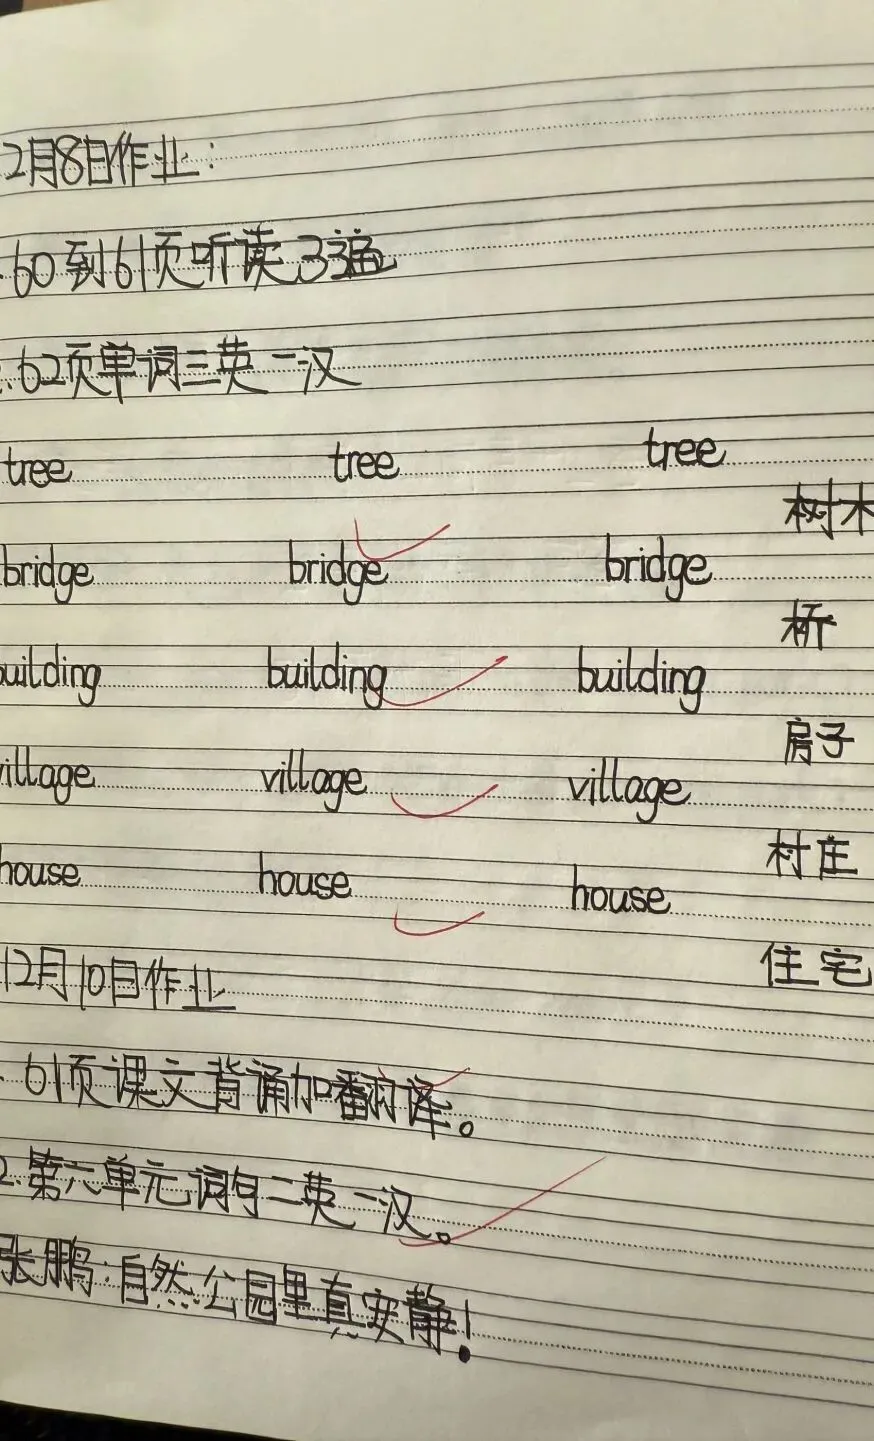 2月8日作业:
60到61页听读3遍
.62页单词三英一汉
tree tree tree
树木
bridge bridge bridge
桥
building building building
房子
village village village
村庄
house house house
住宅
12月10日作业
61页课文背诵加翻译。
2.第六单元词句二英一汉。
张鹏:自然公园里真安静!